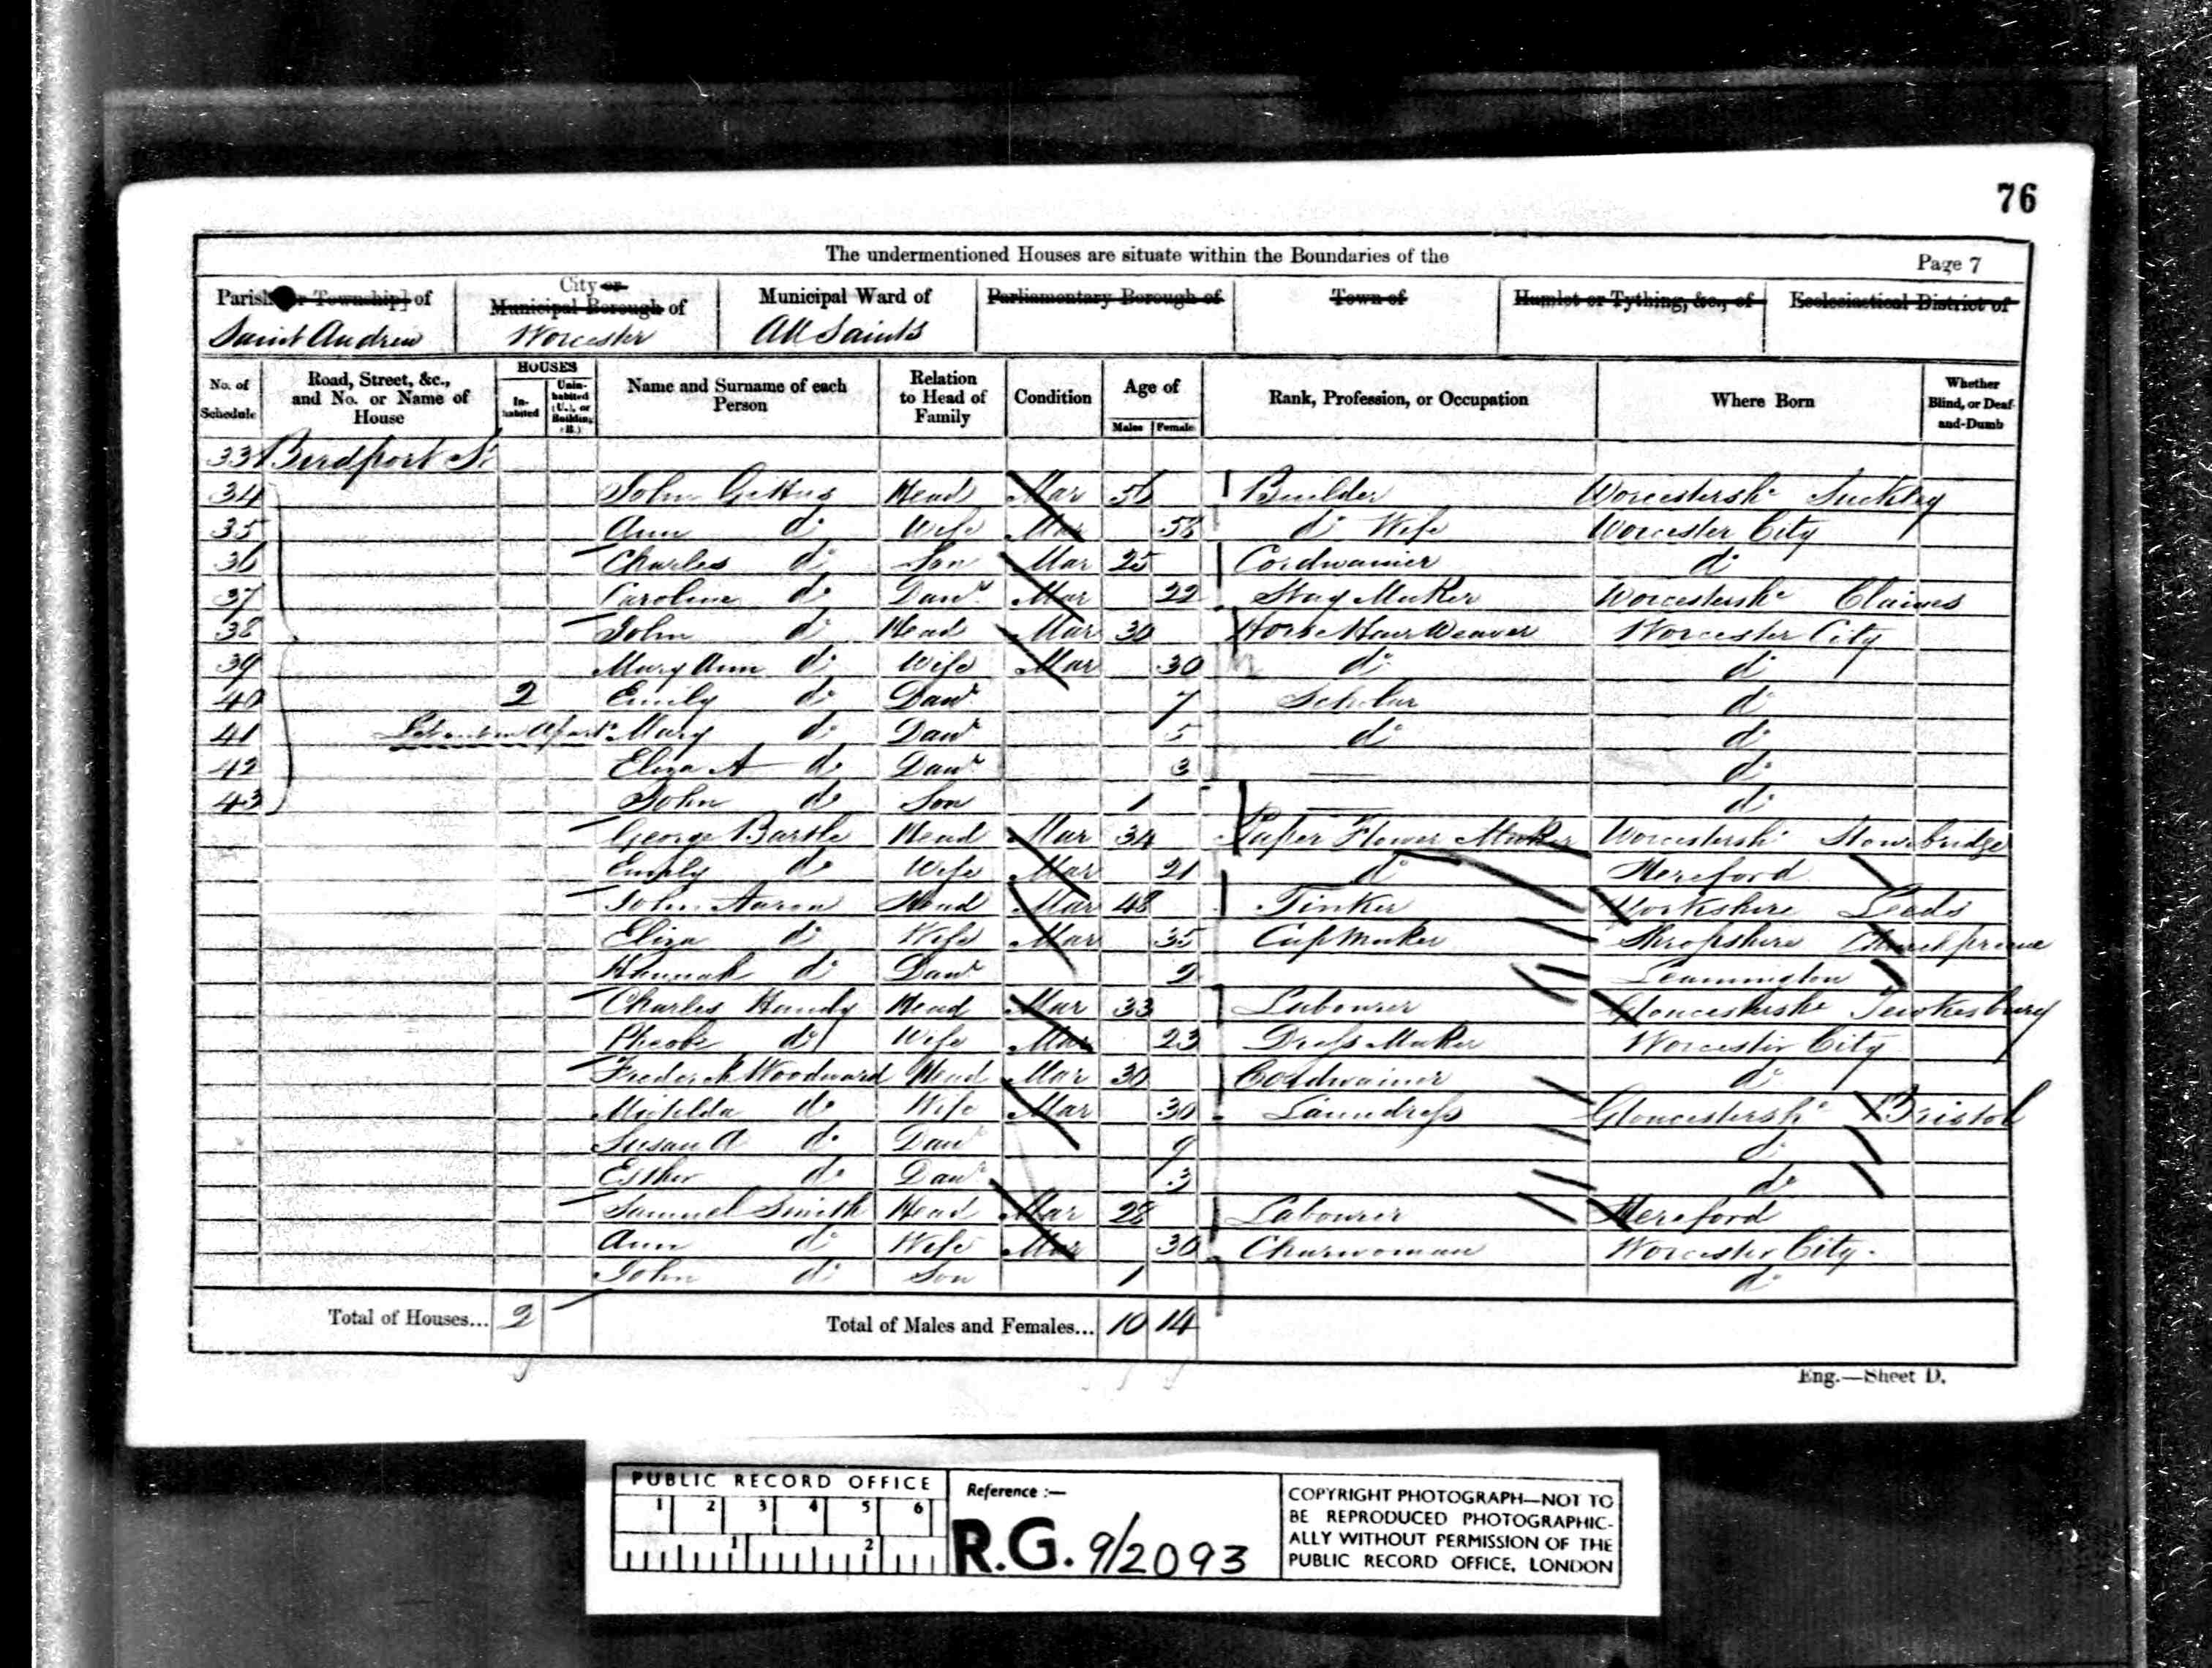 76
The undermentioned Houses are situate within the Boundaries of the
Page 7
Parish [or Township] of
City or Municipal Borough of
Municipal Ward of
Parliamentary Borough of
Town of
Hamlet or Tything, &c., of
Ecclesiastical District of
Saint Andrew
Worcester
All Saints
No. of Schedule
Road, Street, &c., and No. or Name of House
HOUSES
In-habited
Unin-habited (U.), or Building (B.)
Name and Surname of each Person
Relation to Head of Family
Condition
Age of
Males
Females
Rank, Profession, or Occupation
Where Born
Whether Blind, or Deaf-and-Dumb
33 Birdport St
34 John Gettus Head Mar 56 Builder Worcestersh. Suckley
35 Ann do Wife Mar 58 do Wife Worcester City
36 Charles do Son Mar 25 Cordwainer do
37 Caroline do Daur Mar 22 Stay Maker Worcestersh. Claines
38 John do Head Mar 30 Horse Hair Weaver Worcester City
39 Mary Ann do Wife Mar 30 do do
40 2 Emily do Daur 7 Scholar do
41 Mary do Daur 5 do do
42 Eliza A do Daur 3 — do
43 John do Son 1 — do
George Head Mar 34 Paper Flower Maker Worcestersh. Stourbridge
Emily do Wife Mar 21 do Hereford
John Aaron Head Mar 48 Tinker Yorkshire Leeds
Eliza do Wife Mar 35 Cap Maker Shropshire
Hannah do Daur 2 Leamington
Charles Handy Head Mar 33 Labourer Gloucestersh. Tewkesbury
Pheobe do Wife Mar 23 Dress Maker Worcester City
Frederick Woodward Head Mar 30 Cordwainer do
Matilda do Wife Mar 30 Laundress Gloucestersh. Bristol
Susan A do Daur 9 do
Esther do Daur 3 do
Samuel Smith Head Mar 28 Labourer Hereford
Ann do Wife Mar 30 Charwoman Worcester City
John do Son 1 do
Total of Houses... 2
Total of Males and Females... 10 14
Eng.—Sheet D.
PUBLIC RECORD OFFICE
1 2 3 4 5 6
1 2
Reference :—
R.G. 9/2093
COPYRIGHT PHOTOGRAPH—NOT TO
BE REPRODUCED PHOTOGRAPHIC-
ALLY WITHOUT PERMISSION OF THE
PUBLIC RECORD OFFICE, LONDON